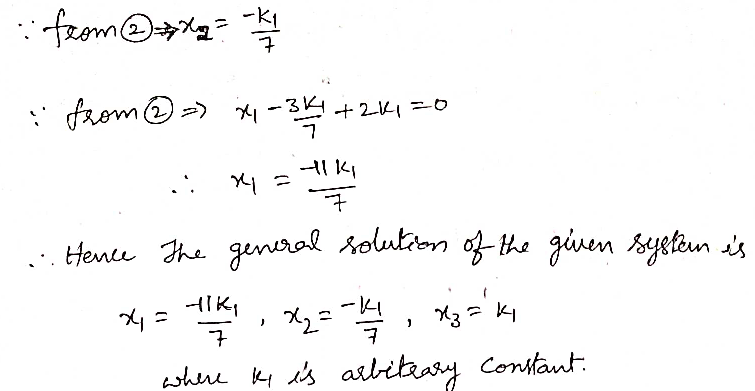 ∵ from ② ⇒ x₂ = -k₁/7
∵ from ② ⇒ x₁ - 3k₁/7 + 2k₁ = 0
∴ x₁ = -11k₁/7
∴ Hence The general solution of the given system is
x₁ = -11k₁/7 , x₂ = -k₁/7 , x₃ = k₁
where k₁ is arbitrary constant.